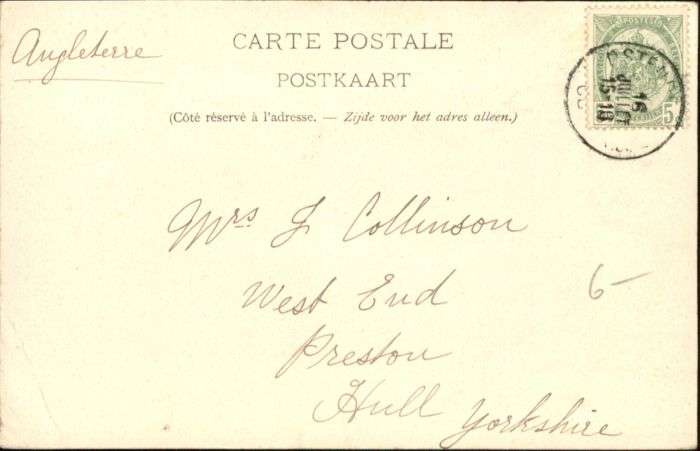 Angleterre
CARTE POSTALE
POSTKAART
(Côté réservé à l'adresse. — Zijde voor het adres alleen.)
16
JUILLET
15-18
5
Mrs J Collinson
West End
6-
Preston
Hull Yorkshire